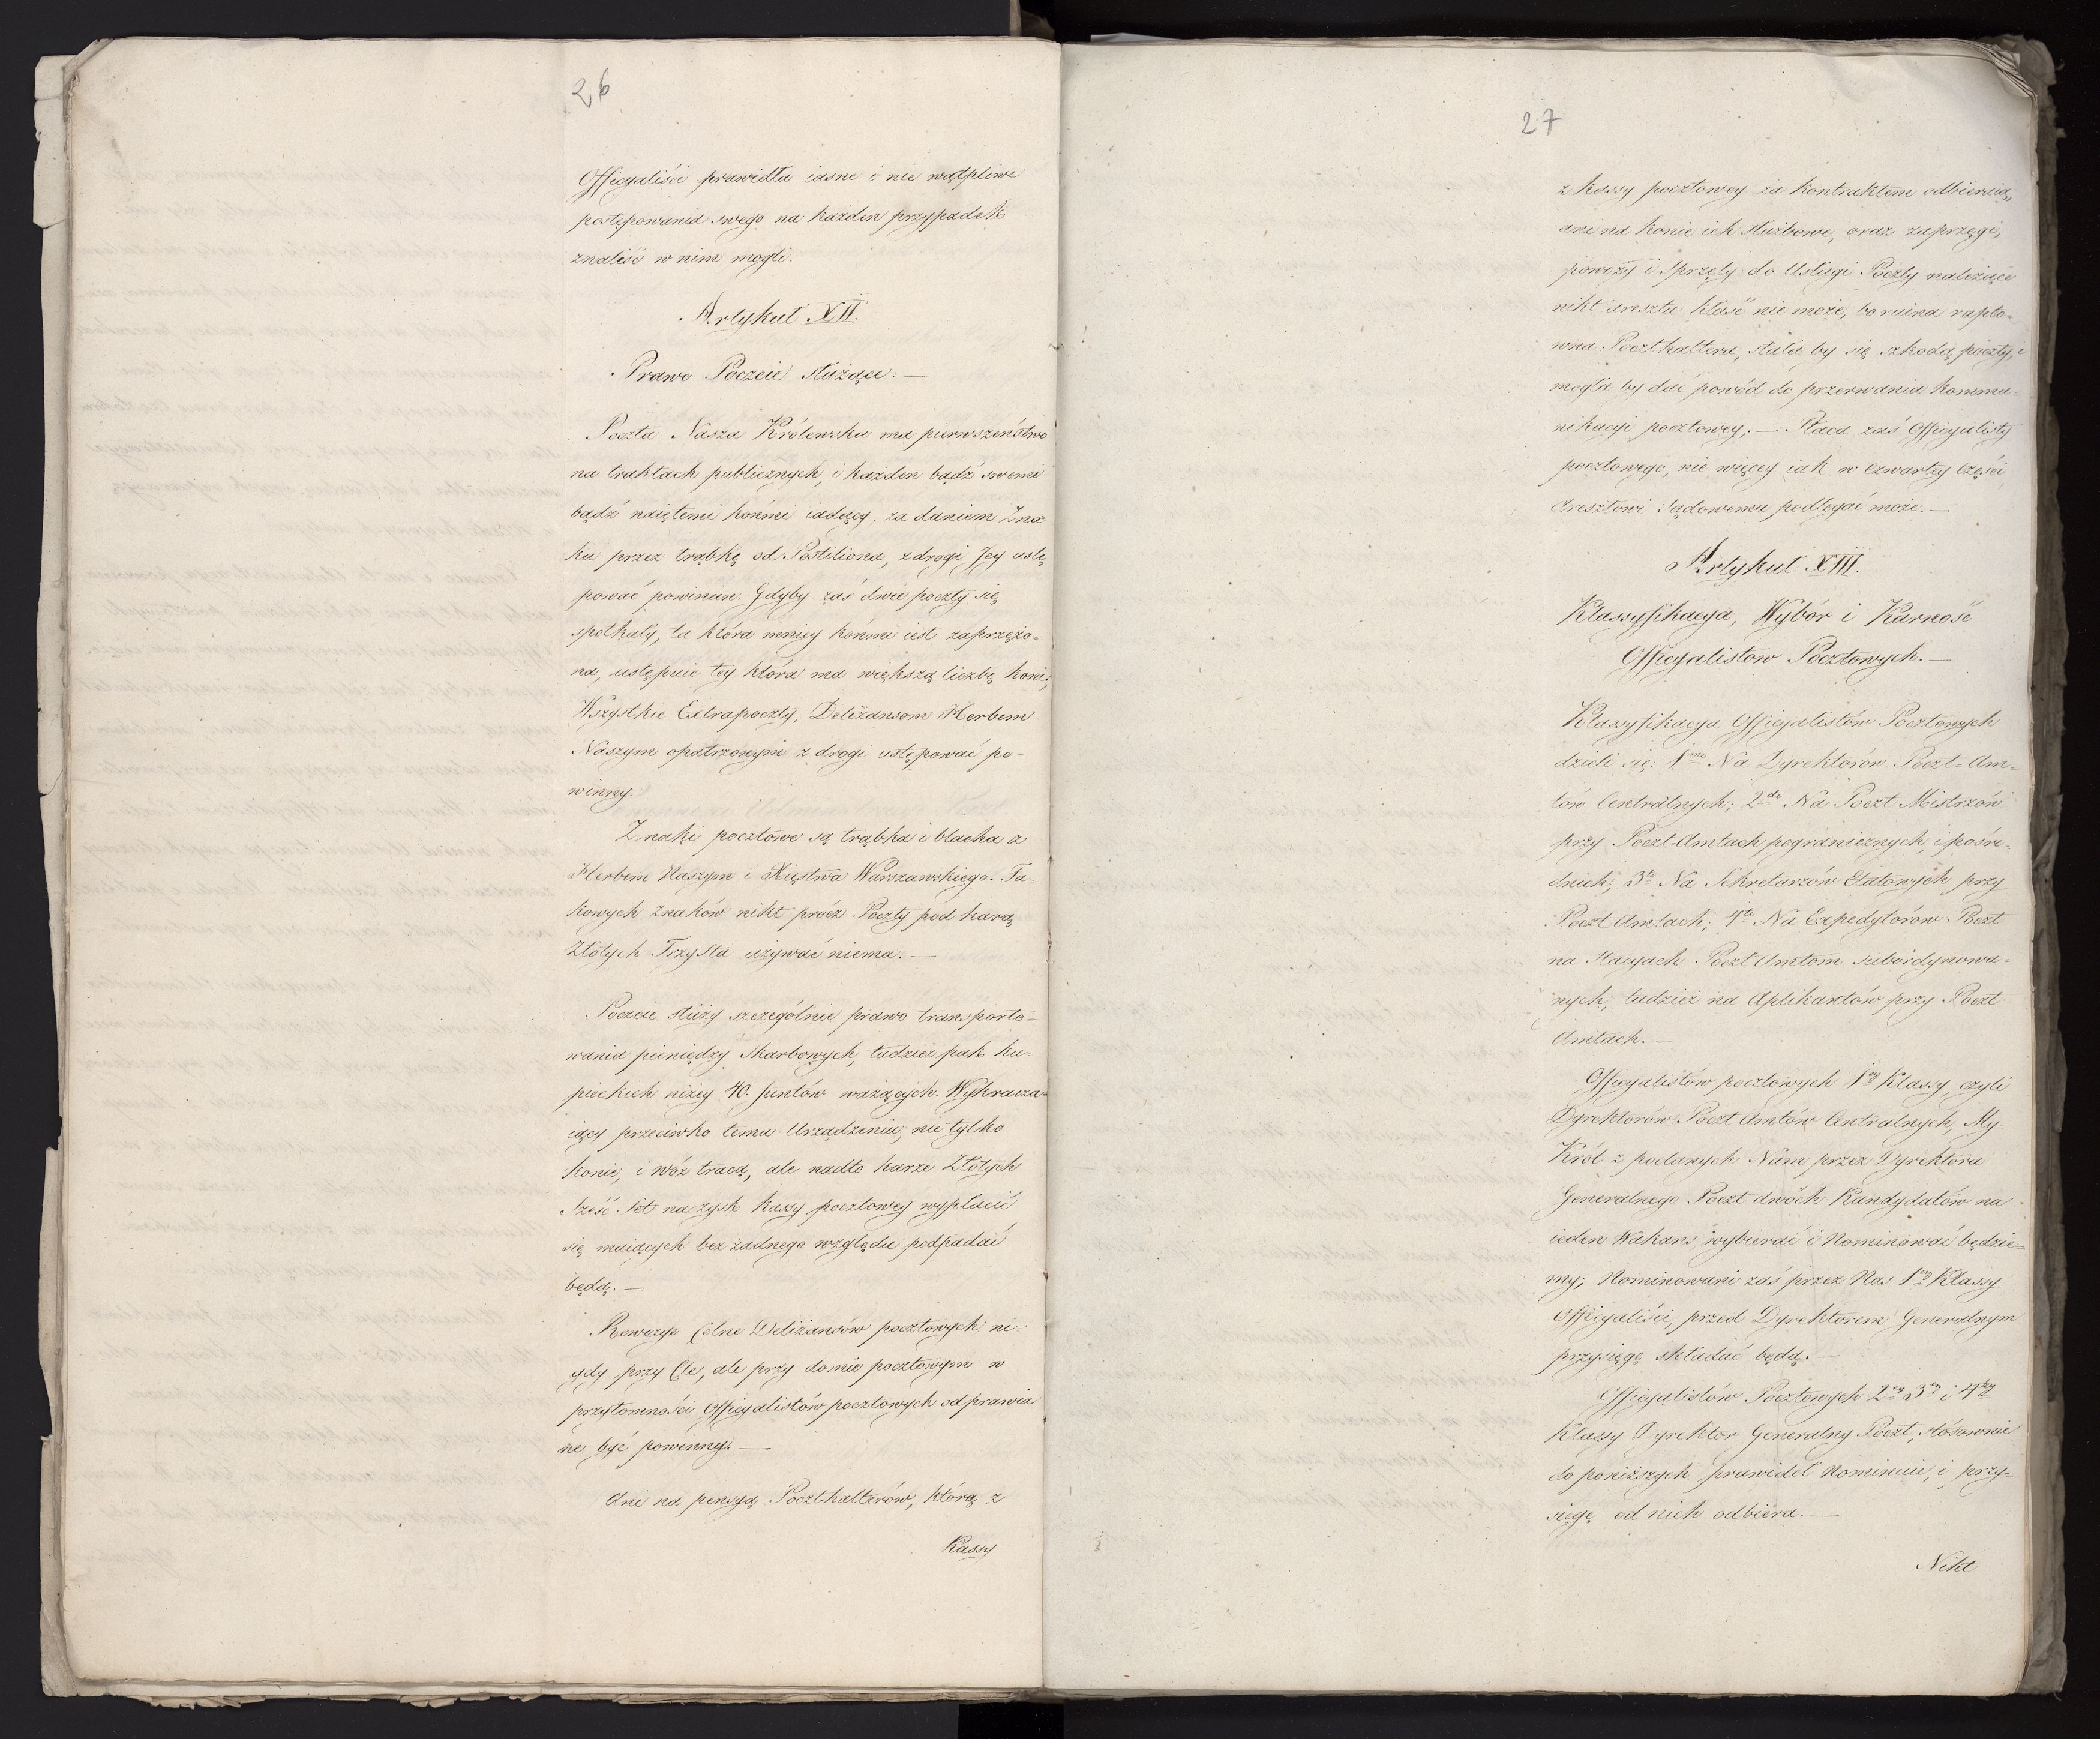 26
Officyaliści prawidła iasne i nie wątpliwe
postępowania swego na każden przypadek
znaleść w nim mogli.
Artykuł XII.
Prawo Poczcie służące. —
Poczta Nasza Królewska ma pierwszeństwo
na traktach publicznych, i każden bądź swemi
bądź naiętemi końmi iadący, za daniem Zna
ku przez trąbkę od Postiliona, z drogi Jey ustę
pować powinien. Gdyby zaś dwie poczty się
spotkały, ta która mniey końmi iest zaprzężo-
na, ustępuie tey która ma większą liczbę koni;
Wszystkie Extrapoczty, Deliżansom Herbem
Naszym opatrzonym z drogi ustępować po-
winny.
Znaki pocztowe są trąbka i blacha z
Herbem Naszym i Xięstwa Warszawskiego. Ta-
kowych znaków nikt prócz Poczty pod karą
Złotych Trzysta używać niema. —
Poczcie służy szczególnie prawo transporto-
wania pieniędzy Skarbowych, tudzież pak ku-
pieckich niżey 40. funtów ważących. Wykracza-
iący przeciwko temu Urządzeniu, nie tylko
konie, i wóz tracą, ale nadto karze Złotych
Sześć Set na zysk kassy pocztowey wypłacić
się maiących bez żadnego względu podpadać
będą. —
Rewizye Celne Deliżansów pocztowych ni-
gdy przy Cle, ale przy domie pocztowym w
przytomności Officyalistów pocztowych odprawia
ne być powinny. —
Ani na pensyą Poczthalterów, którą z
Kassy
27
z Kassy pocztowey za kontraktem odbieraią,
ani na konie ich służbowe, oraz zaprzęgi,
powozy i sprzęty do Usługi Poczty należące
nikt aresztu kłaść nie może, bo ruina rapto-
wna Poczthaltera, stała by się szkodą poczty, i
mogła by dać powód do przerwania kommu-
nikacyi pocztowey; — Płaca zaś Officyalisty
pocztowego, nie więcey iak w czwartey Części
Aresztowi Sądowemu podlegać może. —
Artykuł XIII.
Klassyfikacya, Wybór i Karność
Officyalistow Pocztowych. —
Klassyfikacya Officyalistów Pocztowych
dzieli się: 1mo Na Dyrektorów Poczt-Am-
tów Centralnych; 2do Na Poczt Mistrzów
przy Poczt Amtach pogranicznych, i pośre-
dnich; 3tio Na Sekretarzów Etatowych przy
Poczt Amtach; 4to Na Expedytorów Poczt
na Stacyach Poczt Amtom subordynowa-
nych, tudzież na Aplikantów przy Poczt
Amtach. —
Officyalistów pocztowych 1ey Klassy, czyli
Dyrektorów Poczt Amtów Centralnych, My
Król z podanych Nam przez Dyrektora
Generalnego Poczt dwóch Kandydatów na
ieden Wakans wybierać i Nominować będzie-
my; Nominowani zaś przez Nas 1ey Klassy
Officyaliści, przed Dyrektorem Generalnym
przysięgę składać będą. —
Officyalistów Pocztowych 2ey 3ey i 4tey
Klassy Dyrektor Generalny Poczt, stósownie
do poniższych prawideł Nominuie, i przy-
sięgę od nich odbiera. —
Nikt